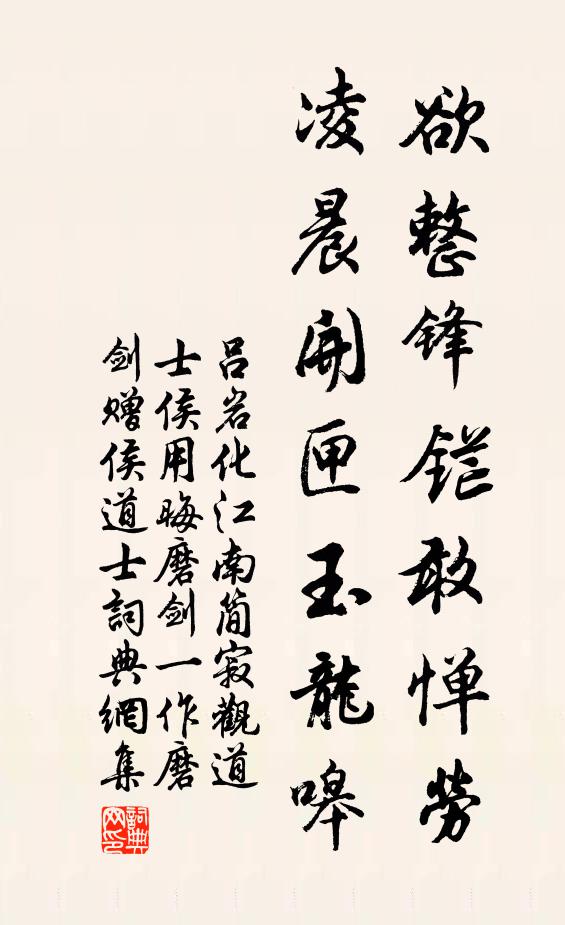 欲整锋铓敢惮勞
凌晨開匣玉龍嗥
吕岩化江南简寂觀道
士侯用晦磨剑一作磨
剑赠侯道士詞典網集
詞典网印